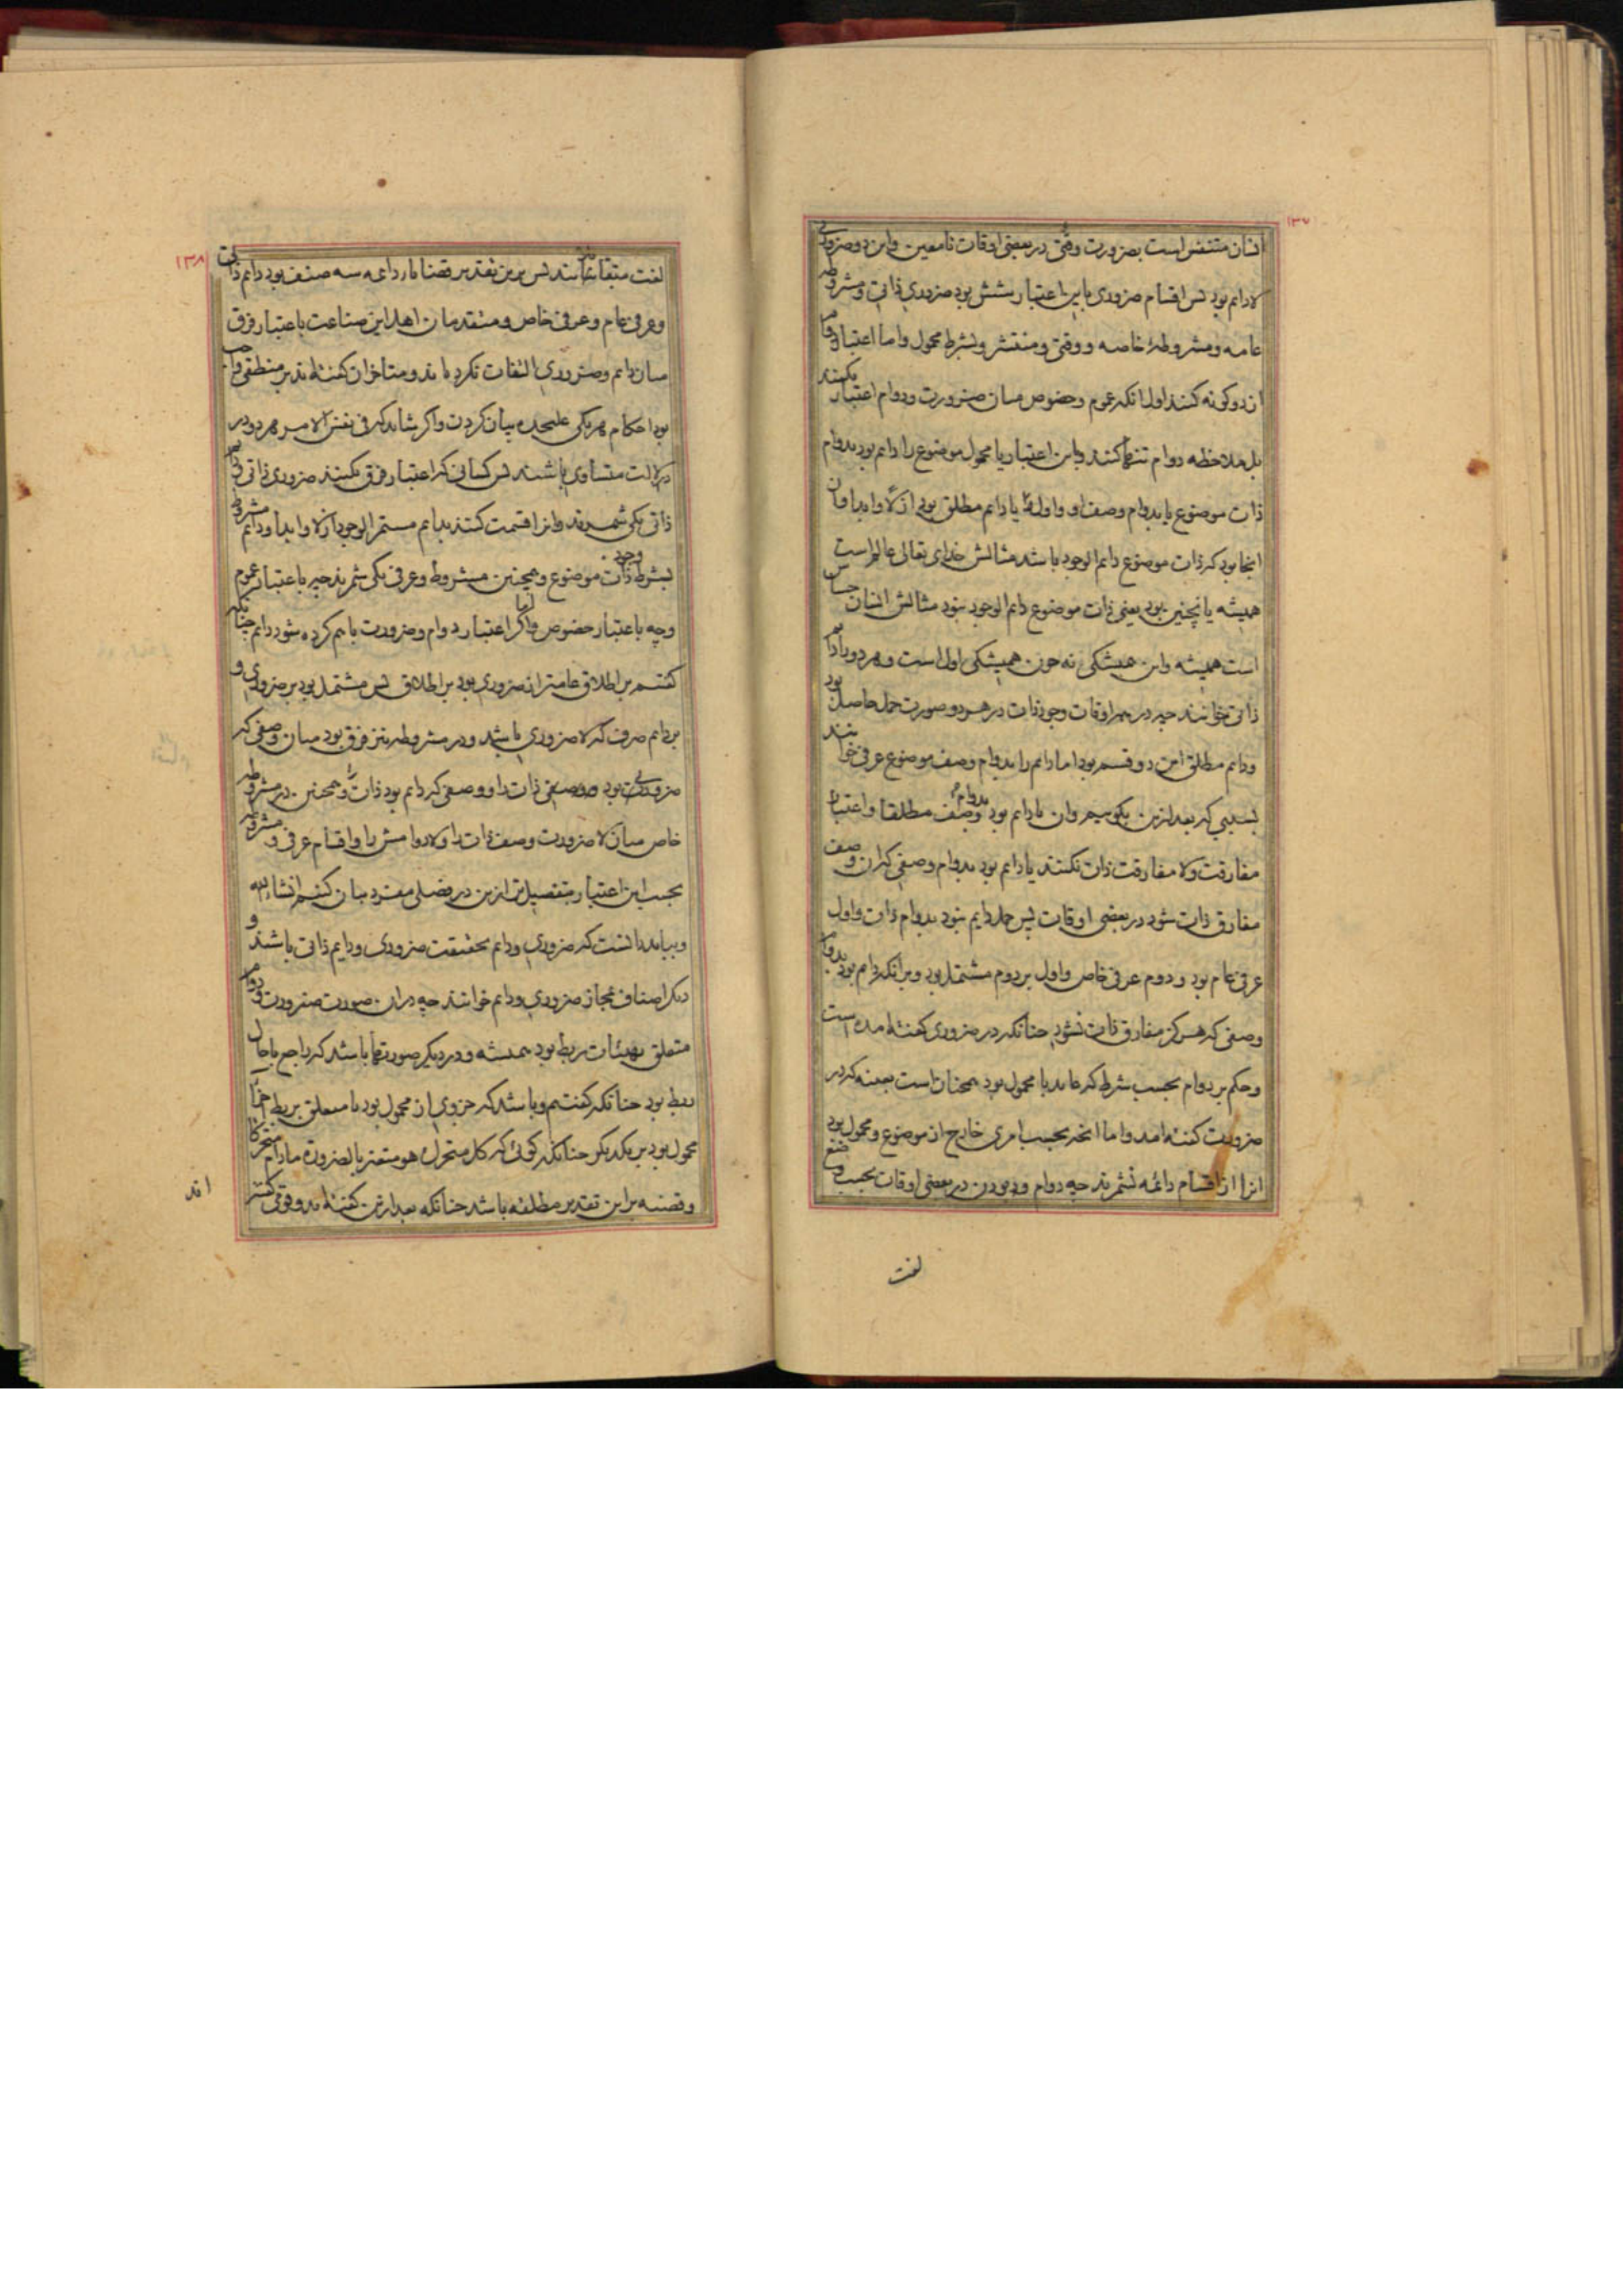 ۱۳۷
انسان متنفس است بضرورت وقتی در بعضی اوقات نامعین واین دو ضروری
لادایم بود پس اقسام ضروری باین اعتبار شش بود ضروری ذاتی ومشروطه
عامه ومشروطهٔ خاصه ووقتی ومنتشر وبشرط محمول واما اعتبار دوام
از دو کونه کنند اول انکه عموم وخصوص میان ضرورت ودوام اعتبار نکنند
بل ملاحظه دوام تنها کنند وباین اعتبار یا محمول موضوع را دایم بود بدوام
ذات موضوع یا بدوام وصف او واول یا دایم مطلق بود ازلا وابدا وان
انجا بود که ذات موضوع دایم الوجود باشد مثالش خدای تعالی عالم است
همیشه یا نچنین بود یعنی ذات موضوع دایم الوجود نبود مثالش انسان حساس
است همیشه واین همیشکی نه چون همیشکی اول است وهر دو را دایم
ذاتی خوانند چه در همه اوقات وجود ذات در هر دو صورت حمل حاصل بود
ودایم مطلق این دو قسم بود اما دایم را بدوام وصف موضوع عرفی خوانند
بسببی که بعد ازین بکوییم وان یا دایم بود بدوام وصف مطلقا واعتبار
مفارقت ولا مفارقت ذات نکنند یا دایم بود بدوام وصفی که ان وصف
مفارق ذات شود در بعضی اوقات پس حمل دایم نبود بدوام ذات واول
عرفی عام بود ودوم عرفی خاص واول بر دوم مشتمل بود وبرانکه دایم بود بدوام
وصفی که هرکز مفارق ذات نشود چنانکه در ضروری کفته امده است
وحکم بر دوام بحسب شرط که عاید با محمول بود همچنان است بعینه که در
ضرورت کفته امد واما انچه بحسب امری خارج از موضوع ومحمول بود
انرا از اقسام دائمه نشمرند چه دوام ودبودن در بعضی اوقات بحسب وضع
لغت
۱۳۸
لغت متقابلانند پس برین تقدیر قضایای دائمه سه صنف بود دایم ذاتی
وعرفی عام وعرفی خاص ومتقدمان اهل این صناعت باعتبار فرق
میان دایم وضروری التفات نکرده اند ومتاخران کفته اند بر منطقی واجب
بود احکام هر یکی علیحده بیان کردن واکر شاید که فی نفس الامر هر دو در
دلالت متساوی باشند پس کسانی که اعتبار فرق نکنند ضروری ذاتی ودایم
ذاتی یکی شمرند وانرا قسمت کنند بدایم مستمر الوجود ازلا وابدا ودایم مشروط
بشرط وجود ذات موضوع وهمچنین مشروط وعرفی یکی شمرند چه باعتبار عموم
وچه باعتبار خصوص واما اکر اعتبار دوام وضرورت باهم کرده شود دایم چنانکه
کفتیم بر اطلاق عامتر از ضروری بود بر اطلاق پس مشتمل بود بر ضروری و
بر دایم صرف که لا ضروری باشد ودر مشروطه نیز فرق بود میان وصفی که
ضروری بود ذات را ووصفی که دایم بود ذات را وهمچنین در مشروطه
خاص میان لا ضرورت وصف ذات را ولادوامش را واقسام عرفی ومشروطه
بحسب این اعتبار بتفصیل تر ازین در فصلی مفرد بیان کنیم انشاء الله
وبباید دانست که ضروری ودایم بحقیقت ضروری ودایم ذاتی باشند و
دیکر اصناف بمجاز ضروری ودایم خوانند چه در ان صورت ضرورت ودوام
متعلق بهیئات ربط بود همیشه ودر دیکر صورتها باشد که راجع با حال
ربط بود چنانکه کفتیم وباشد که جزوی از محمول بود یا متعلق بربط اجزاء
محمول بود بر یکدیکر چنانکه کوئی که کل متحرک هو متغیر بالضرورة مادام متحرکا
وقضیه براین تقدیر مطلقه باشد چنانکه بعد ازین کفته اید ووقتی کفتیر